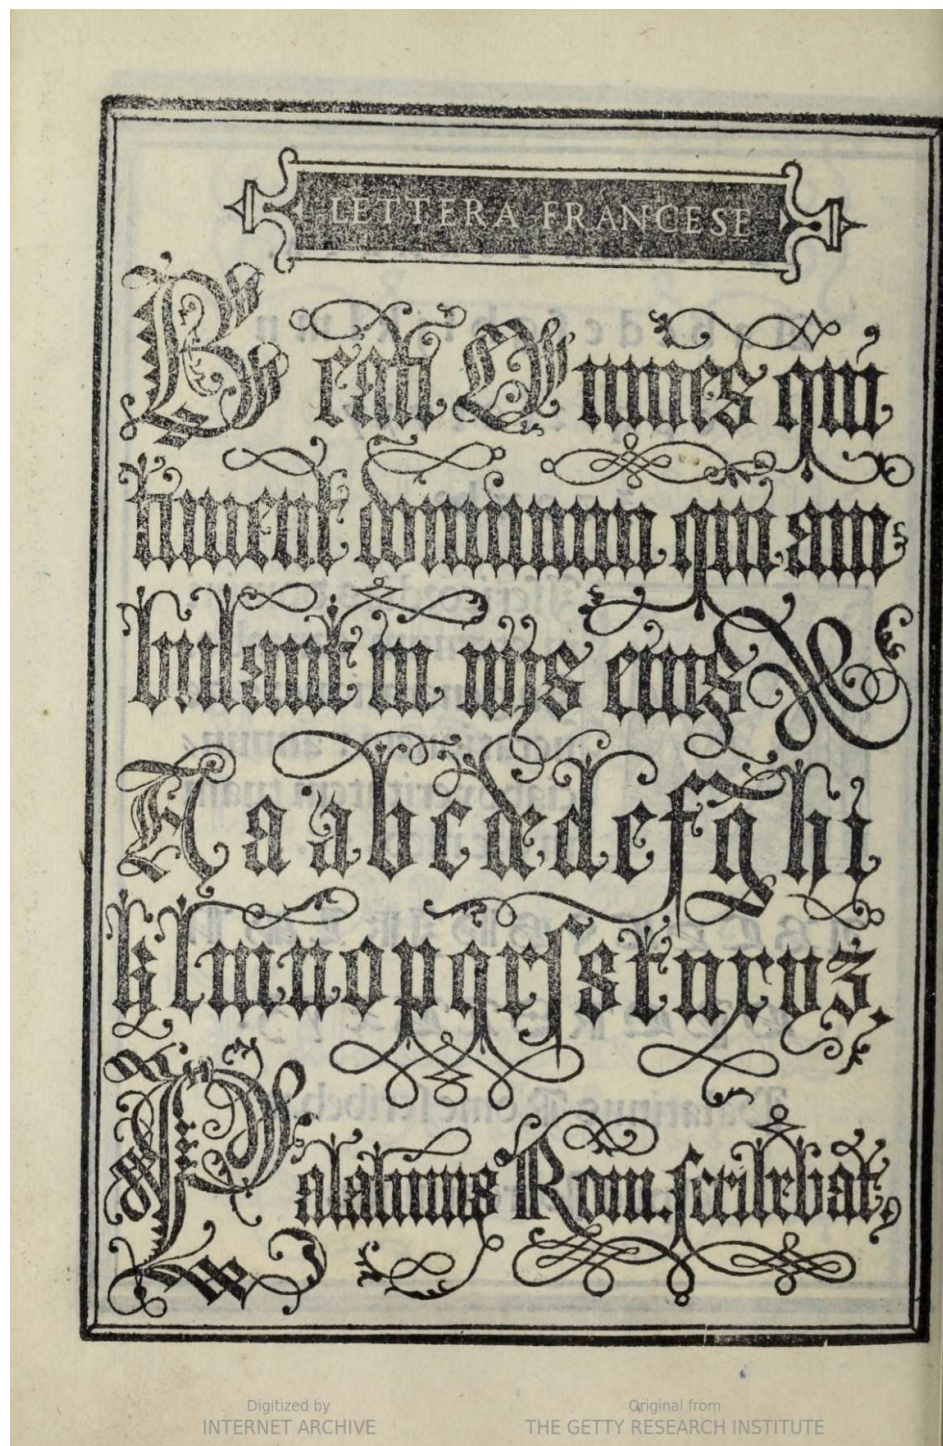 LETTERA FRANCESE
Beati Omnes qui
timent dominum qui am
bulant in vijs eius
A a a b c d e d e f g h i
k l m n o p q r ſ s t u x v z.
Palatinus Rom. ſcribebat,
Digitized by
INTERNET ARCHIVE
Original from
THE GETTY RESEARCH INSTITUTE